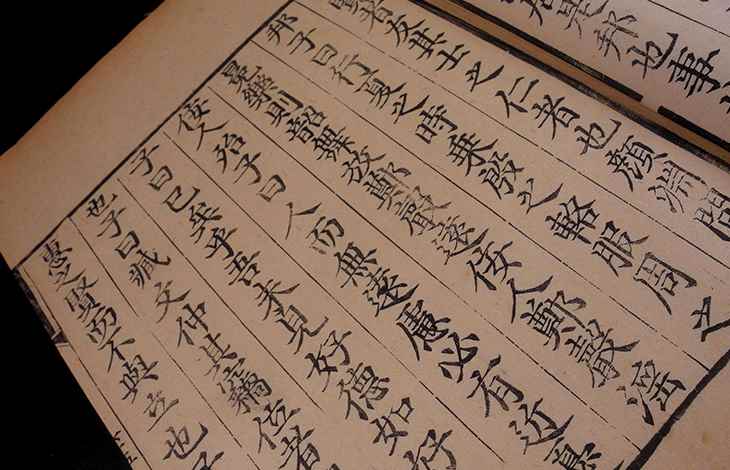 是邦也事
者友其士之仁者也顏淵問
邦子曰行夏之時乘殷之輅服周之
冕樂則韶舞放鄭聲遠佞人鄭聲淫
佞人殆子曰人而無遠慮必有近憂
子曰已矣乎吾未見好德如好
也子曰臧文仲其竊位者
惠之賢而不與立也子